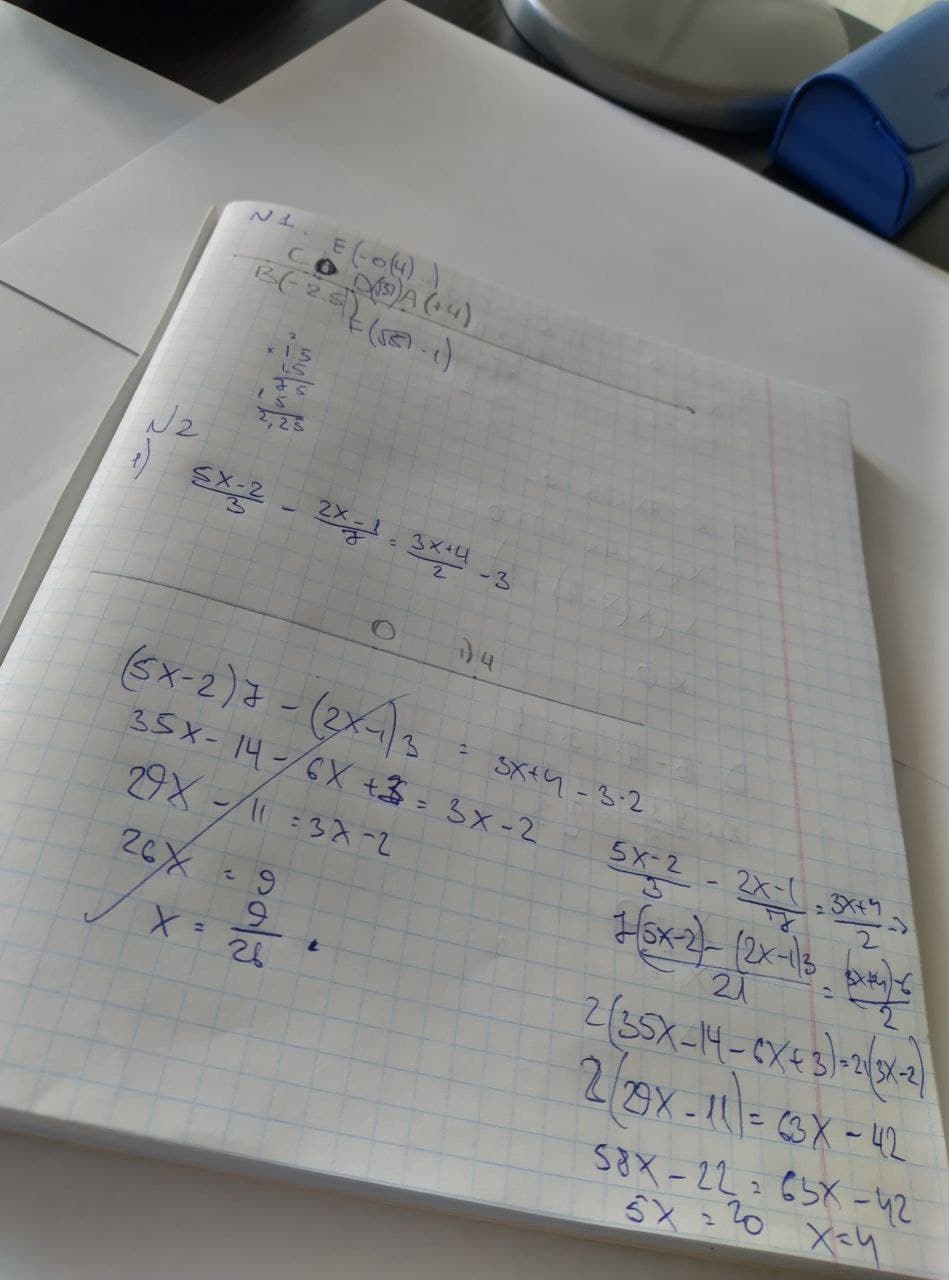 N1.
E(-0(4))
C D(√3) A(+4)
B(-2.5)
F(√5 - 1)
2
× 1.5
1.5
75
15
2,25
N2
1)
(5x-2)/3 - (2x-1)/7 = (3x+4)/2 - 3
0 1) 4
(5x-2)7 - (2x-1)3 = 3x+4 - 3·2
35x - 14 - 6x + 3 = 3x - 2
29x - 11 = 3x - 2
26x = 9
x = 9/26.
(5x-2)/3 - (2x-1)/7 = (3x+4)/2 - 3
(7(5x-2) - (2x-1)3)/21 = ((3x+4)-6)/2
2(35x-14-6x+3) = 21(3x-2)
2(29x-11) = 63x - 42
58x - 22 = 63x - 42
5x = 20 x = 4